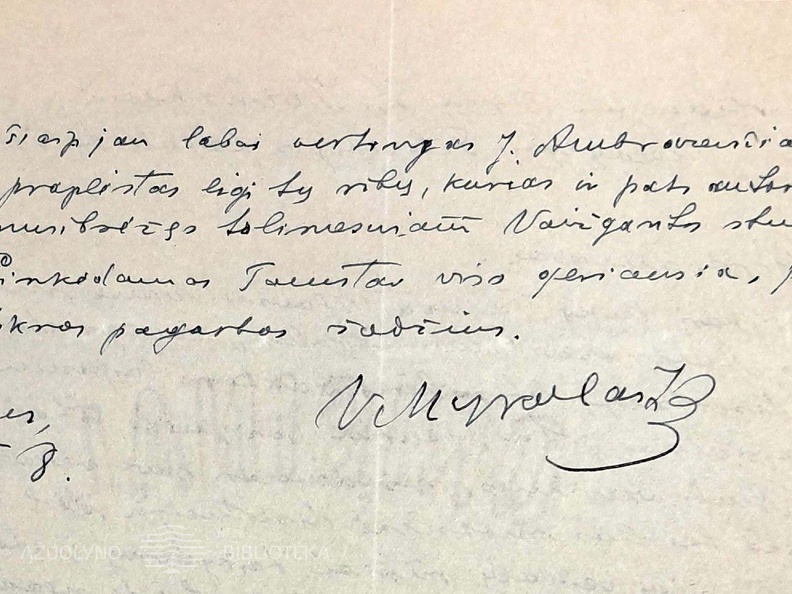 šiaip jau labai vertingas J. Ambrazevičia
praplėstas ligi tų ribų, kurias ir pats autor
nusibrėžęs tolimesniam Vaižganto stu
Linkėdamas Tamstai viso geriausia, p
ikros pagarbos žodžius.
V Mykolaitis
es,
8.
AŽUOLYNO BIBLIOTEKA